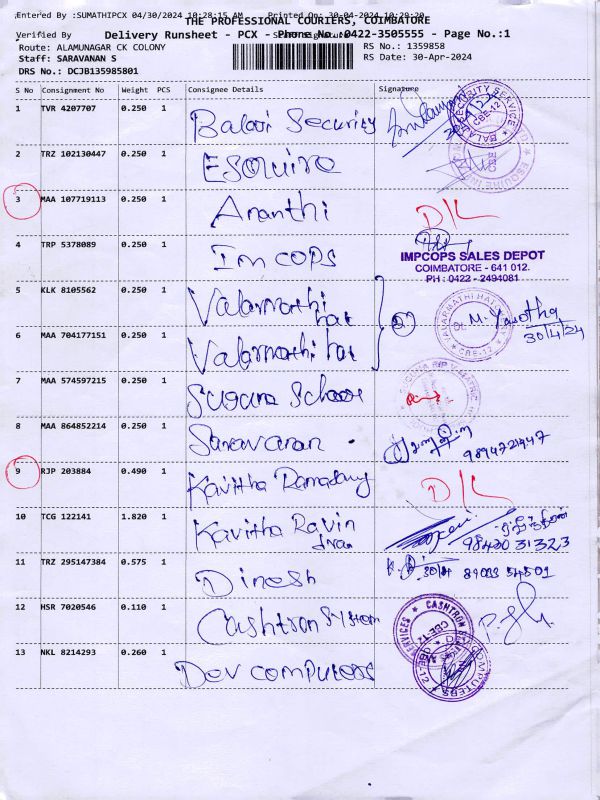 Entered By :SUMATHIPCX 04/30/2024 10:28:15 AM Printed On: 30-04-2024 10:29:20
THE PROFESSIONAL COURIERS, COIMBATORE
Verified By
Delivery Runsheet - PCX - Phone No.:0422-3505555 - Page No.:1
Route: ALAMUNAGAR CK COLONY RS No.: 1359858
Staff: SARAVANAN S RS Date: 30-Apr-2024
DRS No.: DCJB135985801
S No Consignment No Weight PCS Consignee Details Signature
1 TVR 4207707 0.250 1 Balaji Security
2 TRZ 102130447 0.250 1 Esquire
3 MAA 107719113 0.250 1 Ananthi D/L
4 TRP 5378089 0.250 1 Im cops
IMPCOPS SALES DEPOT
COIMBATORE - 641 012.
PH : 0422 - 2494081
5 KLK 8105562 0.250 1 Valarmathi hat
M. Yasotha
30/4/24
6 MAA 704177151 0.250 1 Valarmathi hat
7 MAA 574597215 0.250 1 Suguna School
8 MAA 864852214 0.250 1 Saravanan
9 RJP 203884 0.490 1 Kavitha D/L
10 TCG 122141 1.820 1 Kavitha Ravin
dran
98430 31323
11 TRZ 295147384 0.575 1 Dinesh 30/4
12 HSR 7020546 0.110 1 Cashtron System
13 NKL 8214293 0.260 1 Dev computers